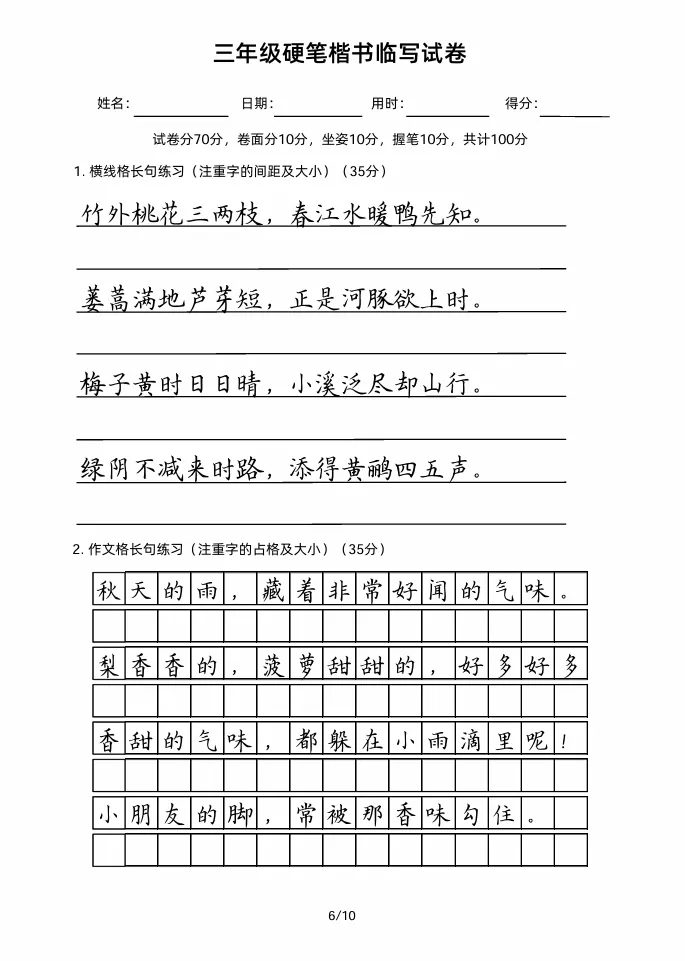 三年级硬笔楷书临写试卷
姓名： 日期： 用时： 得分：
试卷分70分，卷面分10分，坐姿10分，握笔10分，共计100分
1. 横线格长句练习（注重字的间距及大小）（35分）
竹外桃花三两枝，春江水暖鸭先知。
蒌蒿满地芦芽短，正是河豚欲上时。
梅子黄时日日晴，小溪泛尽却山行。
绿阴不减来时路，添得黄鹂四五声。
2. 作文格长句练习（注重字的占格及大小）（35分）
秋天的雨，藏着非常好闻的气味。
梨香香的，菠萝甜甜的，好多好多
香甜的气味，都躲在小雨滴里呢！
小朋友的脚，常被那香味勾住。
6/10